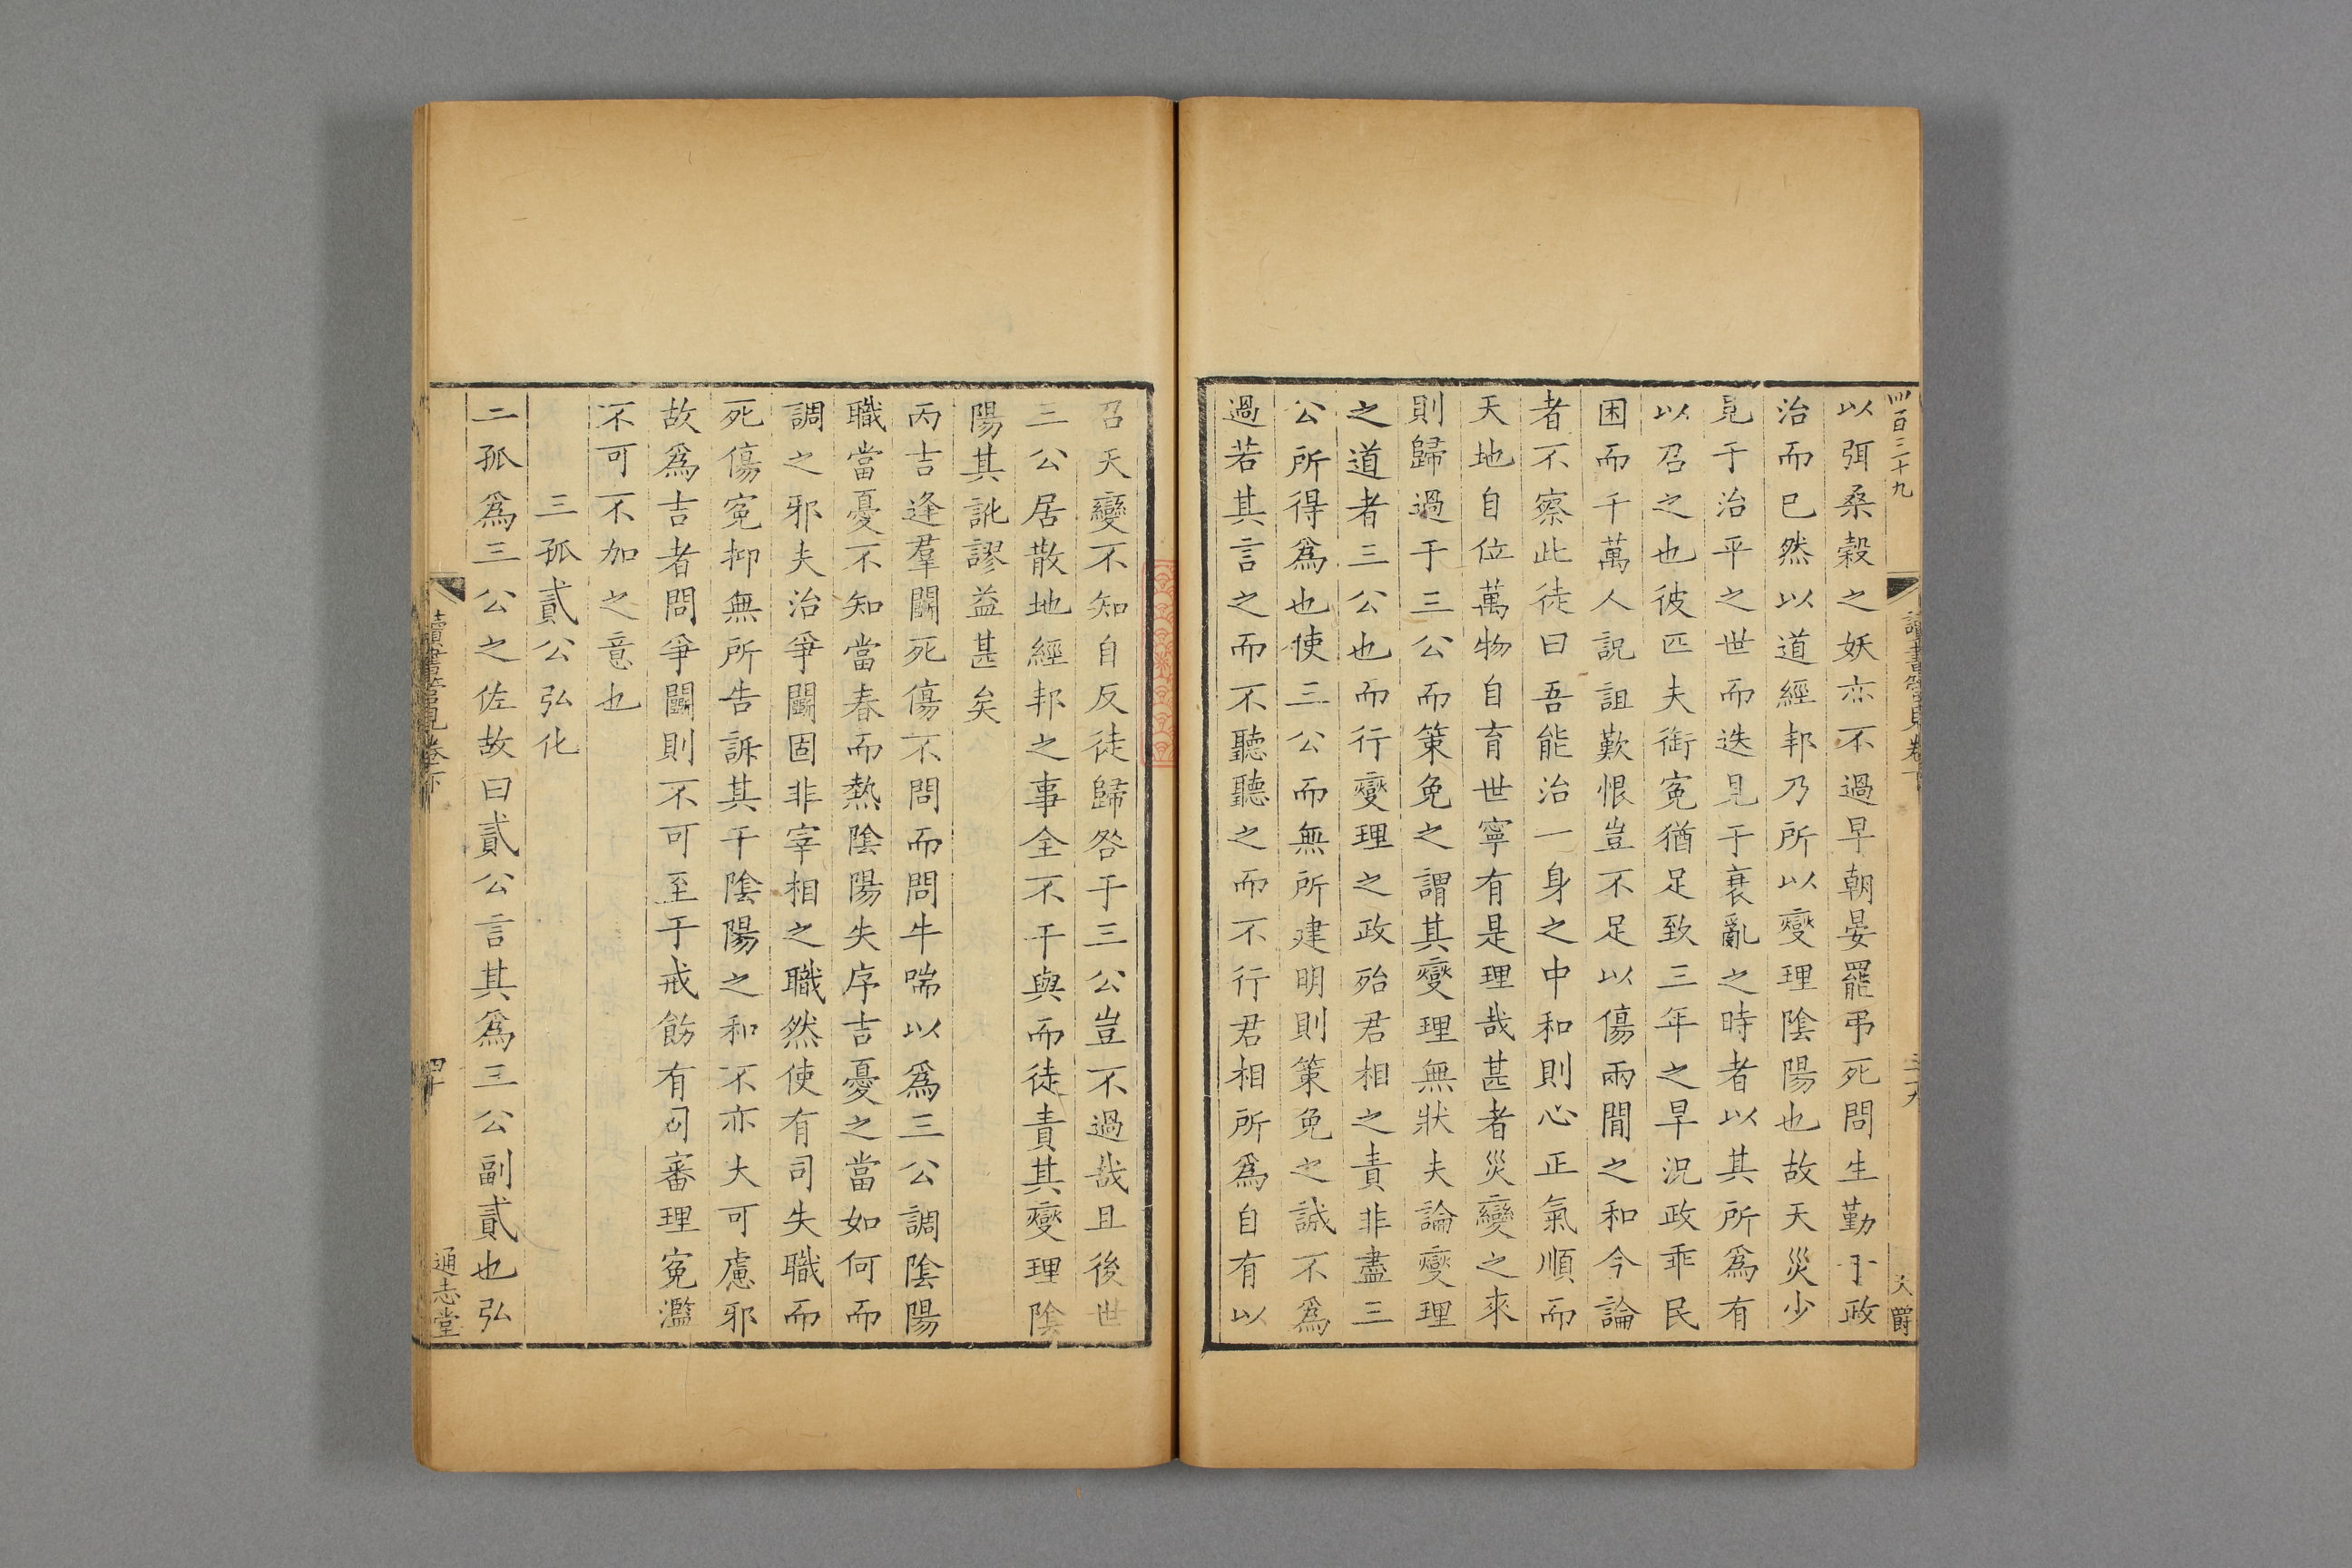 四百二十九
讀書管見卷下
三十九
天爵
以弭桑榖之妖亦不過早朝晏罷弔死問生勤于政
治而已然以道經邦乃所以燮理隂陽也故天災少
見于治平之世而迭見于衰亂之時者以其所爲有
以召之也彼匹夫銜寃猶足致三年之旱況政乖民
困而千萬人詋詛歎恨豈不足以傷兩間之和今論
者不察此徒曰吾能治一身之中和則心正氣順而
天地自位萬物自育世寧有是理哉甚者災變之來
則歸過于三公而策免之謂其燮理無狀夫論燮理
之道者三公也而行燮理之政殆君相之責非盡三
公所得爲也使三公而無所建明則策免之誠不爲
過若其言之而不聽聽之而不行君相所爲自有以
召天變不知自反徒歸咎于三公豈不過哉且後世
三公居散地經邦之事全不干與而徒責其燮理隂
陽其訛謬益甚矣
丙吉逢羣鬭死傷不問而問牛喘以爲三公調隂陽
職當憂不知當春而熱隂陽失序吉憂之當如何而
調之邪夫治爭鬭固非宰相之職然使有司失職而
死傷寃抑無所告訴其干隂陽之和不亦大可慮邪
故爲吉者問爭鬭則不可至于戒飭有司審理寃濫
不可不加之意也
三孤貳公弘化
二孤爲三公之佐故曰貳公言其爲三公副貳也弘
讀書管見卷下
四十
通志堂